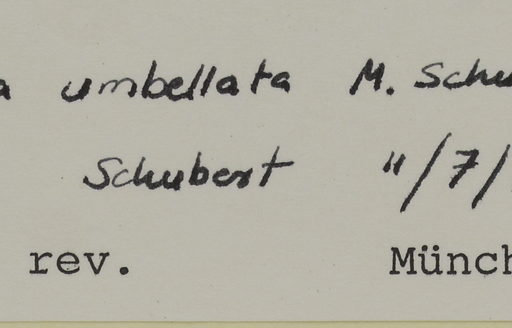 a umbellata M. Schu
Schubert "/7/
rev. Münch